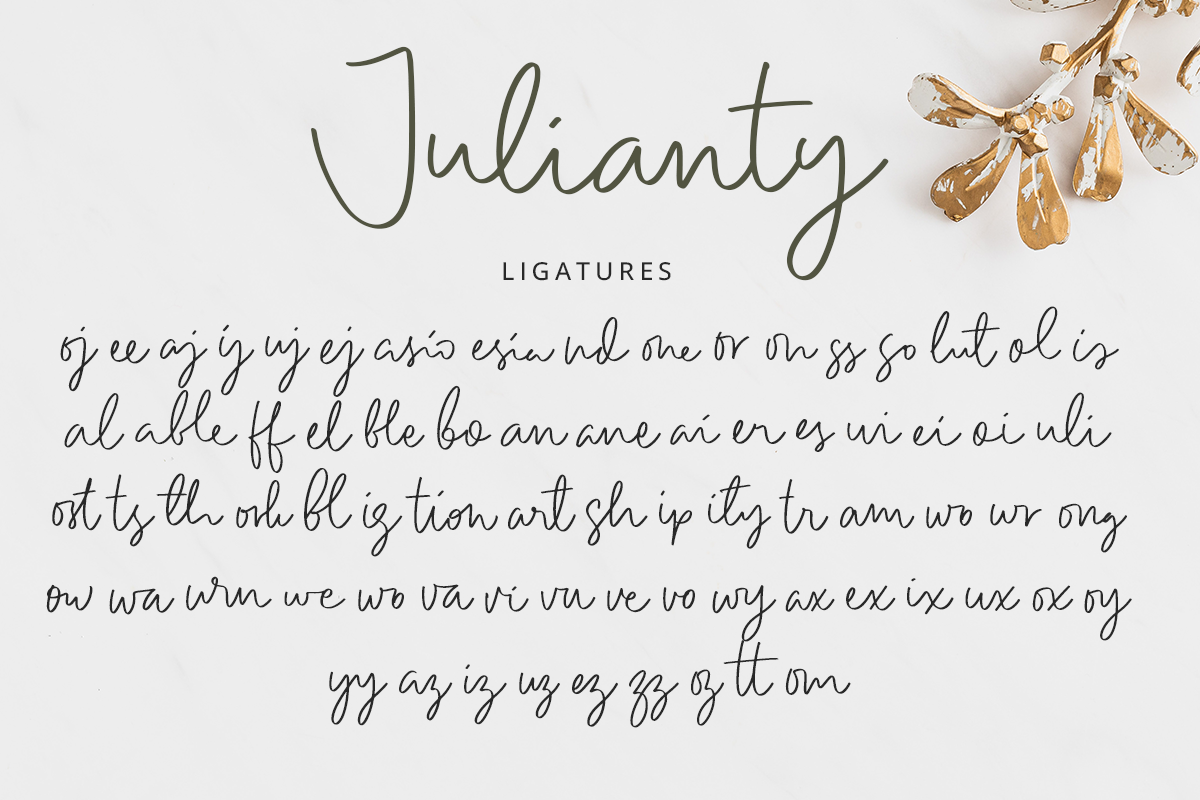 Julianty
LIGATURES
oj ee aj ij uj ej asio esia nd one or on ss so lut ol is
al able ff el ble bo an ane ai er es ui ei oi uli
ost ts th osh bl is tion art sh ip ity tr am wo wr ong
ow wa wm we wo va vi vu ve vo wy ax ex ix ux ox oy
yy az iz uz ez zz oz tt om